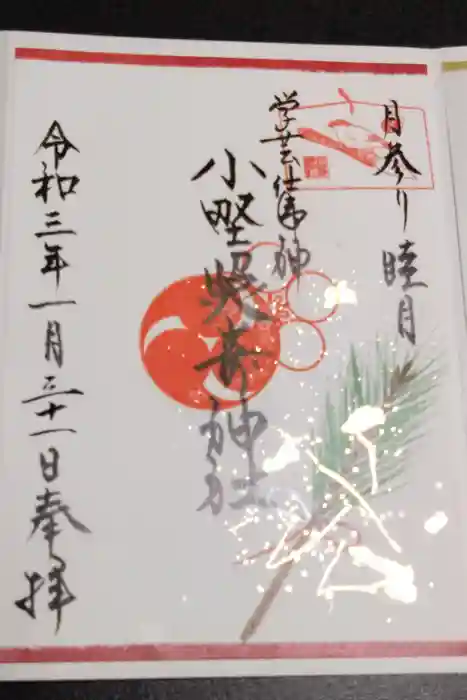 月参り 睦月
学芸仕事神
小野照崎神社
令和三年一月三十一日奉拝